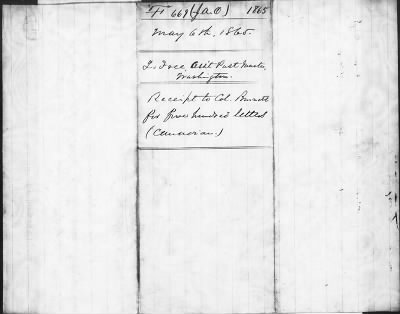 "F" 669 (JAO) 1865
May 6th, 1865.
L. Free, Ass't Post Master,
Washington.
Receipt to Col. Burnett
for five hundred letters
(Canadian.)